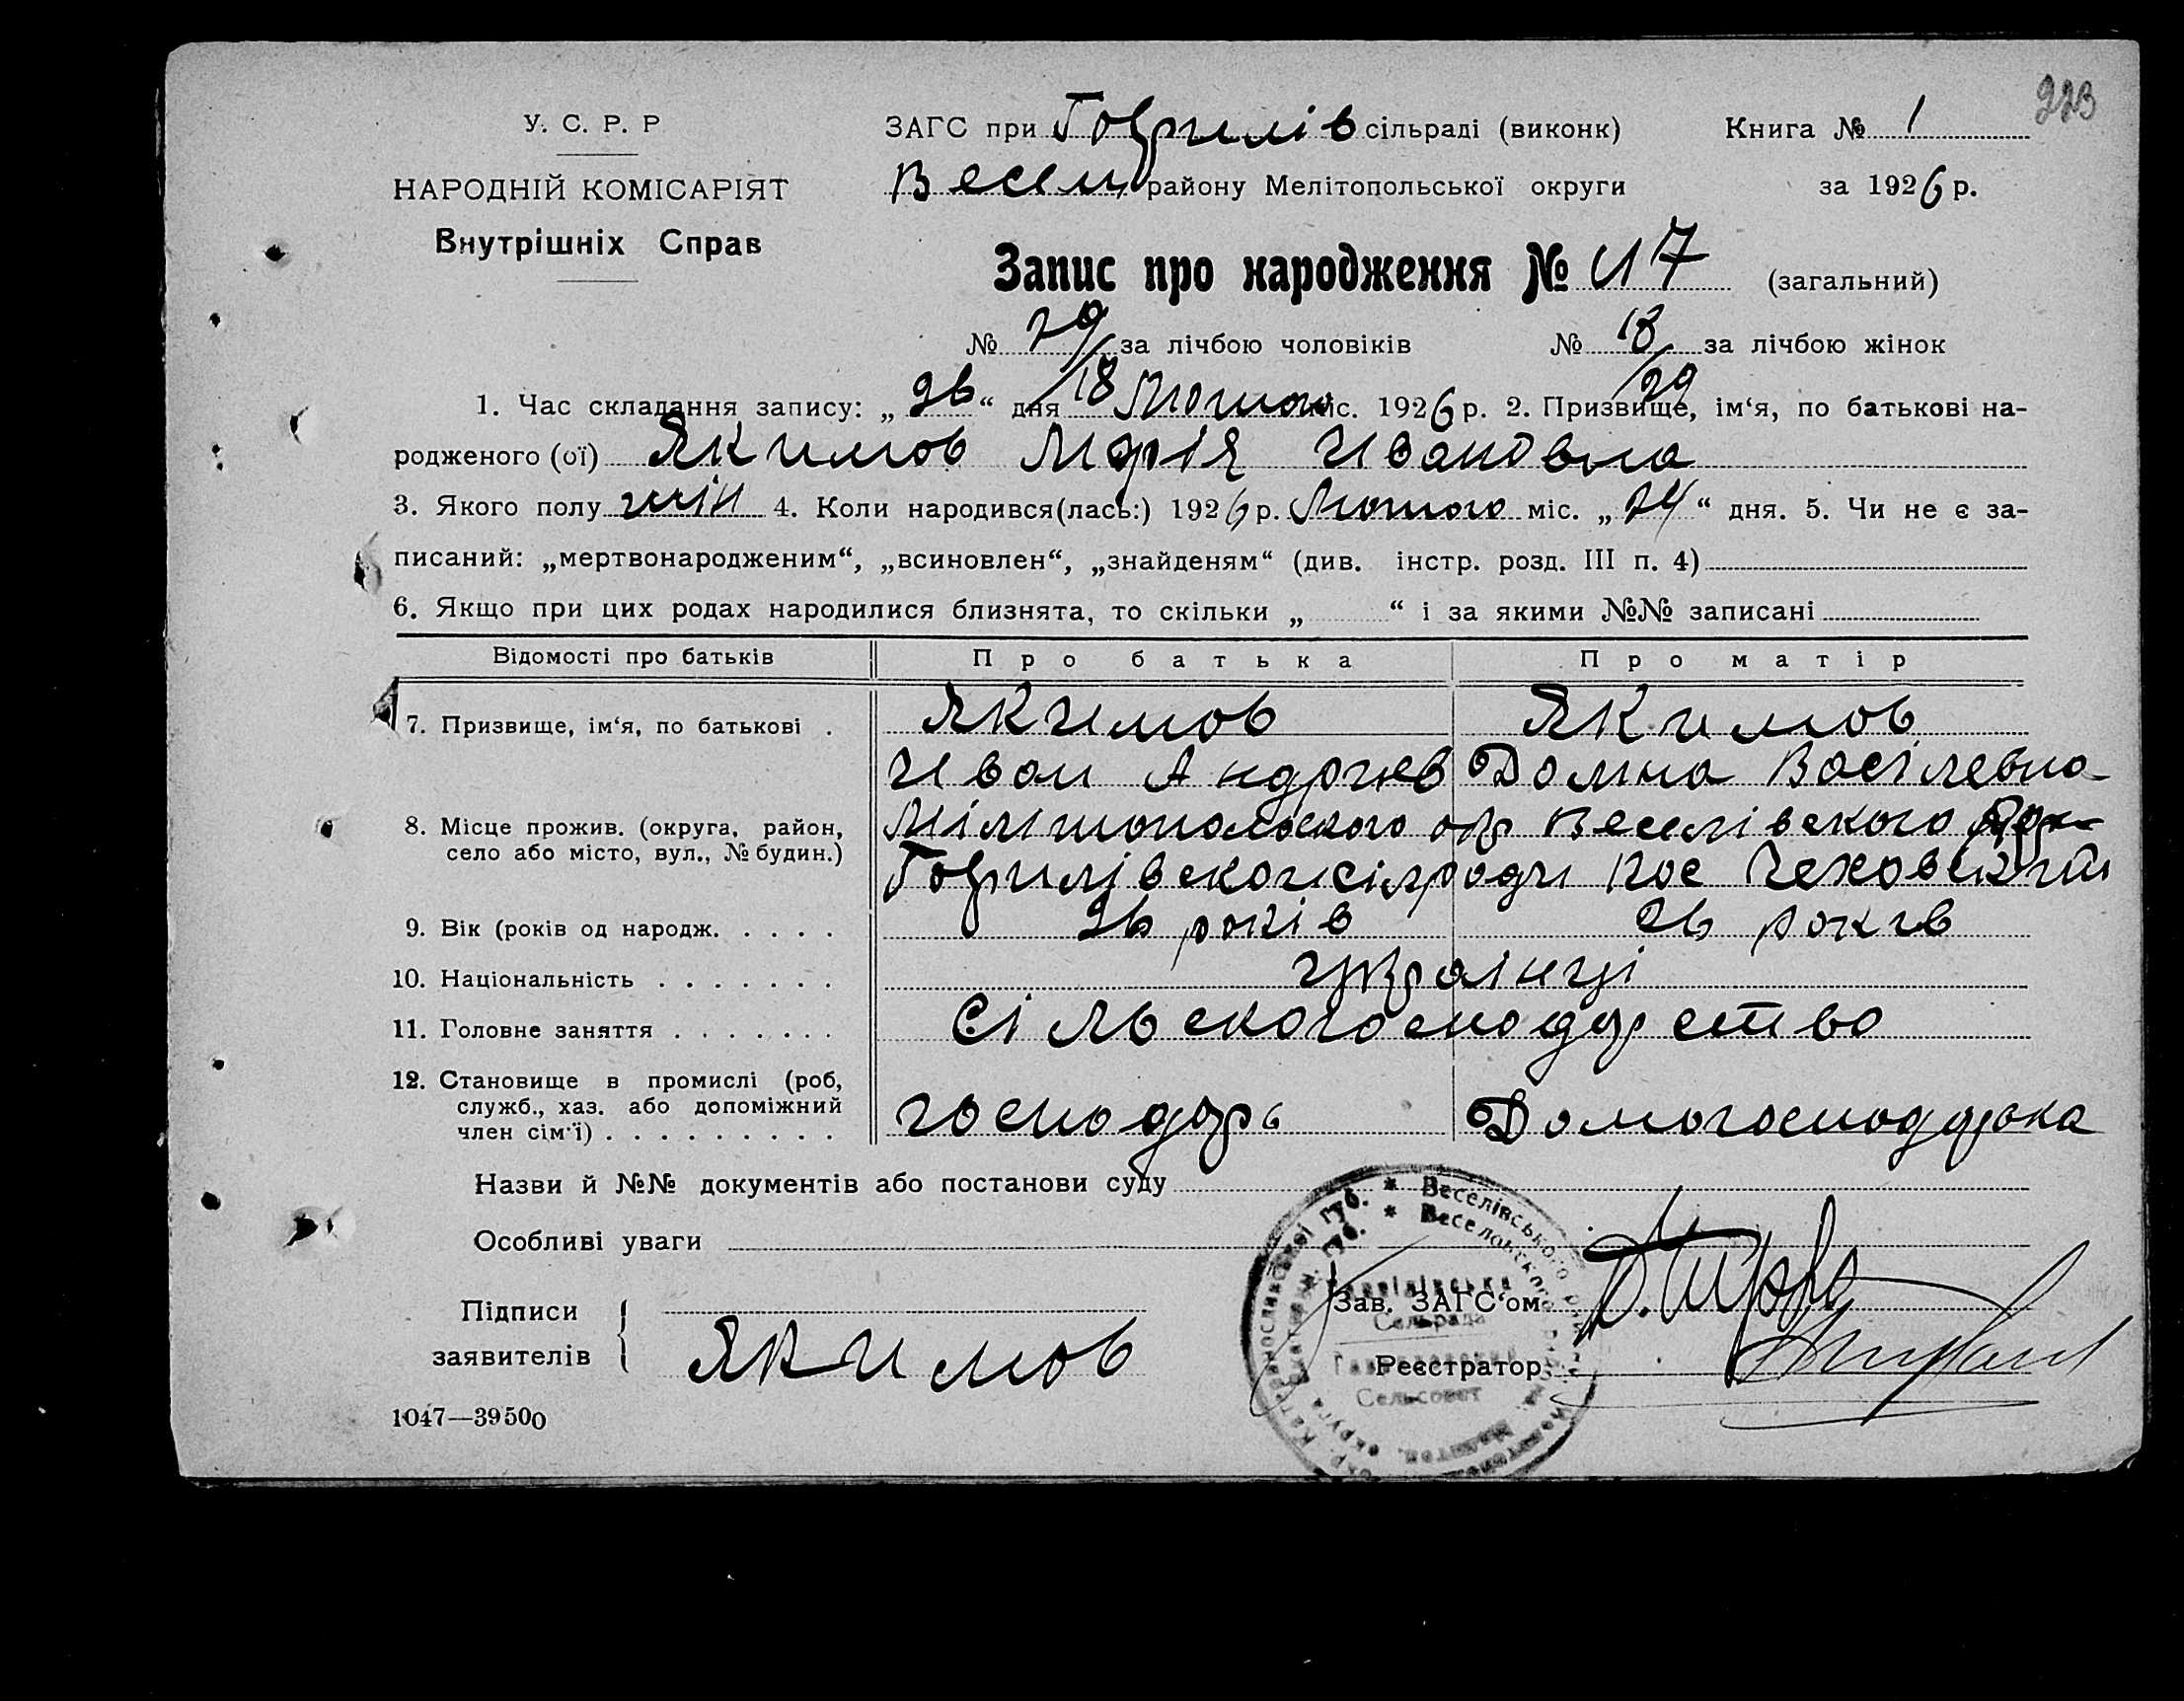 223
У. С. Р. Р
НАРОДНІЙ КОМІСАРІЯТ
Внутрішніх Справ
ЗАГС при Гаврилів сільраді (виконк) Книга № 1
Весел. району Мелітопольської округи за 1926 р.
Запис про народження № 47 (загальний)
№ 29/18 за лічбою чоловіків № 18/29 за лічбою жінок
1. Час складання запису: „26“ дня Лютого міс. 1926 р. 2. Призвище, ім‘я, по батькові на-
родженого (ої) Якимов Марія Ивановна
3. Якого полу жін 4. Коли народився(лась:) 1926 р. Лютого міс. „24“ дня. 5. Чи не є за-
писаний: „мертвонародженим“, „всиновлен“, „знайденям“ (див. інстр. розд. III п. 4)
6. Якщо при цих родах народилися близнята, то скільки „ “ і за якими №№ записані
Відомості про батьків Про батька Про матір
7. Призвище, ім‘я, по батькові . Якимов Якимов
Иван Андриев Домна Васілевна
8. Місце прожив. (округа, район, Мілітопольского окр Веселівского
село або місто, вул., № будин.) Гаврилівскои сілради пос Чеховский
9. Вік (років од народж. . . . . 26 років 26 років
10. Національність . . . . . . . украінці
11. Головне заняття . . . . . . . Сільскогосподарство
12. Становище в промислі (роб,
служб., хаз. або допоміжний
член сім‘ї) . . . . . . . . . господарь Домогосподарка
Назви й №№ документів або постанови суду
Особливі уваги
Підписи
заявителів Якимов
Зав. ЗАГС‘ом
Реєстратор
Веселівського
Сельрада
Сельсовет
1047—39500